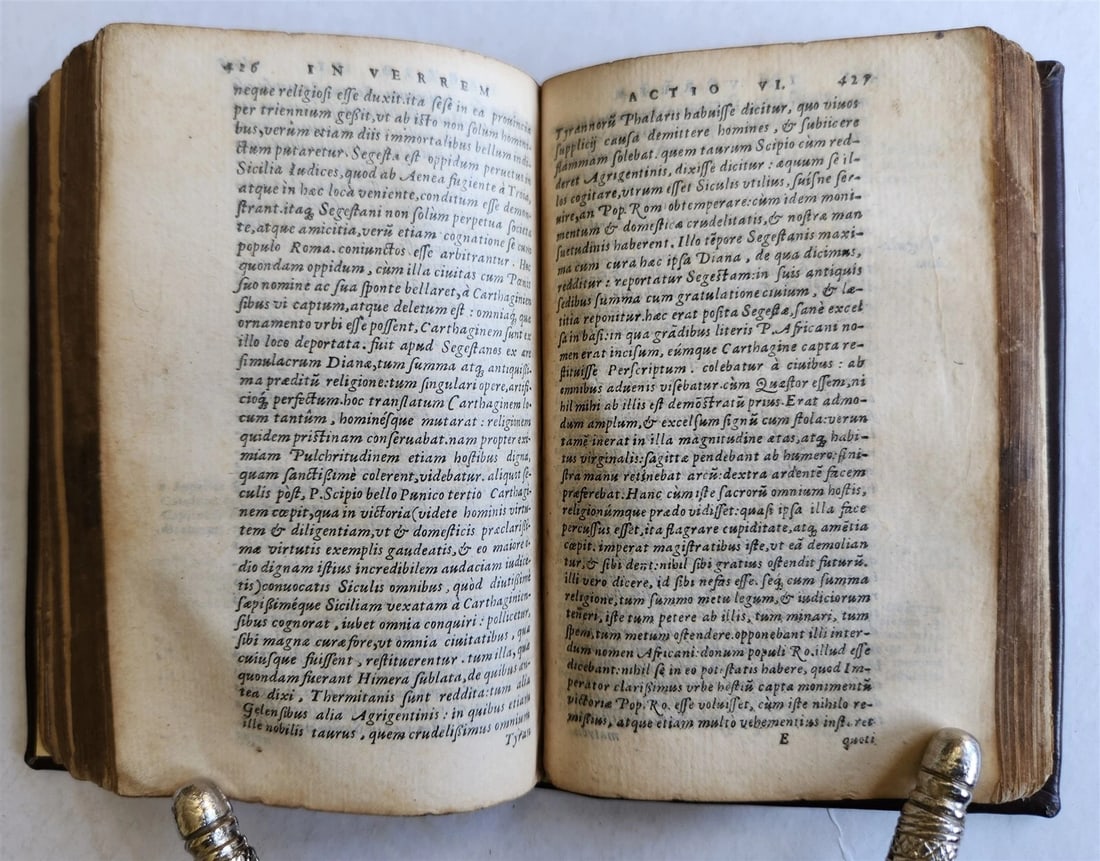 426 IN VERREM
neque religiosi esse duxit. ita sese in ea prouincia
per triennium gessit, vt ab isto non solum homini-
bus, verùm etiam diis immortalibus bellum indi-
ctum putaretur. Segesta est oppidum peruetus in
Sicilia Iudices, quod ab Aenea fugiente à Troia,
atque in hæc loca veniente, conditum esse demon-
strant. itaq; Segestani non solum perpetua societa
te, atque amicitia, verũ etiam cognatione se cum
populo Roma. coniunctos esse arbitrantur. Hoc
quondam oppidum, cùm illa ciuitas cum Pœnis
suo nomine ac sua sponte bellaret, à Carthaginien
sibus vi captum, atque deletum est: omniaq; quæ
ornamento vrbi esse possent, Carthaginem sunt ex
illo loco deportata. fuit apud Segestanos ex ære
simulacrum Dianæ, tum summa atq; antiquissi-
ma præditũ religione: tum singulari opere, artifi-
cioq; perfectum. hoc translatum Carthaginem lo-
cum tantùm, hominésque mutarat: religionem
quidem pristinam conseruabat. nam propter exi-
miam Pulchritudinem etiam hostibus digna,
quam sanctissimè colerent, videbatur. aliquot se-
culis pòst, P. Scipio bello Punico tertio Carthagi-
nem cœpit, qua in victoria (videte hominis virtu-
tem & diligentiam, vt & domesticis præclarissi-
mæ virtutis exemplis gaudeatis, & eo maiore o-
dio dignam istius incredibilem audaciam iudice-
tis) conuocatis Siculis omnibus, quòd diutissimè
sæpissiméque Siciliam vexatam à Carthaginien-
sibus cognorat, iubet omnia conquiri: pollicetur,
sibi magnæ curæ fore, vt omnia ciuitatibus, quæ
cuiusque fuissent, restituerentur. tum illa, quæ
quondam fuerant Himera sublata, de quibus an-
tea dixi, Thermitanis sunt reddita: tum alia
Gelensibus alia Agrigentinis: in quibus etiam
ille nobilis taurus, quem crudelissimus omnium
Tyran
ACTIO VI. 427
Tyrannorũ Phalaris habuisse dicitur, quo viuos
supplicij causa demittere homines, & subiicere
flammam solebat. quem taurum Scipio cùm red-
deret Agrigentinis, dixisse dicitur: æquum se il-
los cogitare, vtrum esset Siculis vtilius, suísne ser-
uire, an Pop. Rom obtemperare: cùm idem moni-
mentum & domesticæ crudelitatis, & nostræ man
suetudinis haberent. Illo tẽpore Segestanis maxi-
ma cum cura hæc ipsa Diana, de qua dicimus,
redditur: reportatur Segestam: in suis antiquis
sedibus summa cum gratulatione ciuium, & læ-
titia reponitur. hæc erat posita Segestæ, sanè excel
sa in basi: in qua grãdibus literis P. Africani no-
men erat incisum, eúmque Carthagine capta re-
stituisse Perscriptum. colebatur à ciuibus: ab
omnibus aduenis visebatur. cùm Quæstor essem, ni
hil mihi ab illis est demõstratũ prius. Erat admo-
dum amplum, & excelsum signũ cum stola: verun
tamẽ inerat in illa magnitudine ætas, atq; habi-
tus virginalis: sagittæ pendebant ab humero: sini-
stra manu retinebat arcũ: dextra ardentẽ facem
præferebat. Hanc cùm iste sacrorũ omnium hostis,
religionúmque prædo vidisset: quasi ipsa illa face
percussus esset, ita flagrare cupiditate, atq; amẽtia
cœpit. imperat magistratibus iste, vt eã demolian
tur, & sibi dent: nihil sibi gratius ostendit futurũ.
illi vero dicere, id sibi nefas esse. seq; cum summa
religione, tum summo metu legum, & iudiciorum
teneri, iste tum petere ab illis, tum minari, tum
spem, tum metum ostendere. opponebant illi inter-
dum nomen Africani: donum populi Ro. illud esse
dicebant: nihil se in eo potestatis habere, quod Im-
perator clarissimus vrbe hostiũ capta monimentũ
victoriæ Pop. Ro. esse voluisset, cùm iste nihilo re-
missius, atque etiam multo vehementius instaret
E quoti